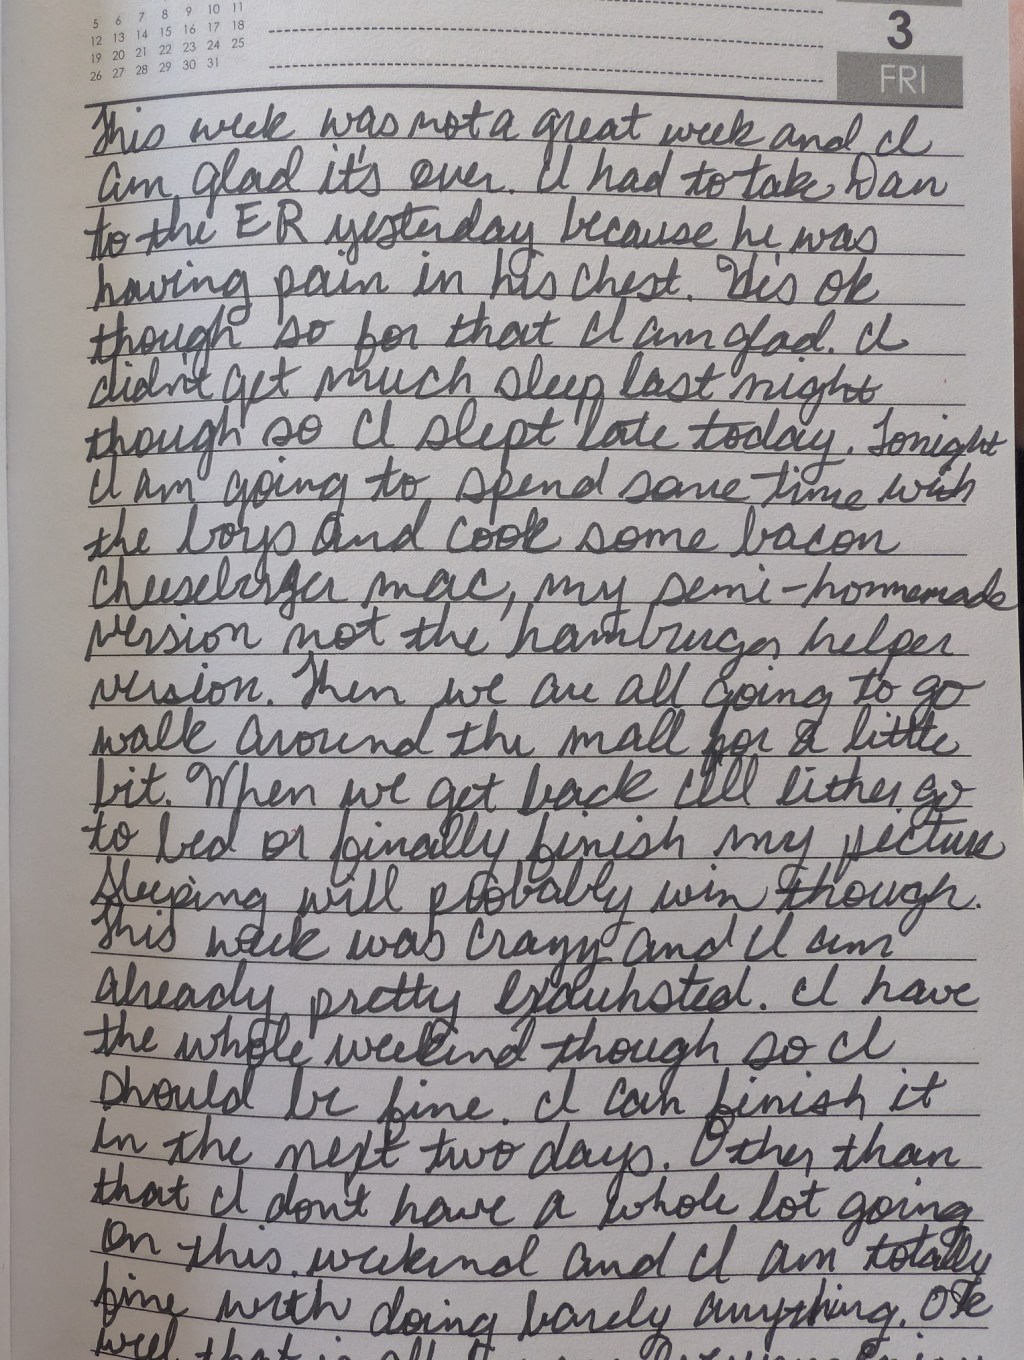 5 6 7 8 9 10 11
12 13 14 15 16 17 18
19 20 21 22 23 24 25
26 27 28 29 30 31
3
FRI
This week was not a great week and I
am glad it's over. I had to take Dan
to the ER yesterday because he was
having pain in his chest. He's ok
though so for that I am glad. I
didn't get much sleep last night
though so I slept late today. Tonight
I am going to spend some time with
the boys and cook some bacon
cheeseburger mac, my semi-homemade
version not the hamburger helper
version. Then we are all going to go
walk around the mall for a little
bit. When we get back I'll either go
to bed or finally finish my picture
sleeping will probably win though.
This week was crazy and I am
already pretty exhausted. I have
the whole weekend though so I
should be fine. I can finish it
in the next two days. Other than
that I don't have a whole lot going
on this weekend and I am totally
fine with doing barely anything. Ok
well that is all